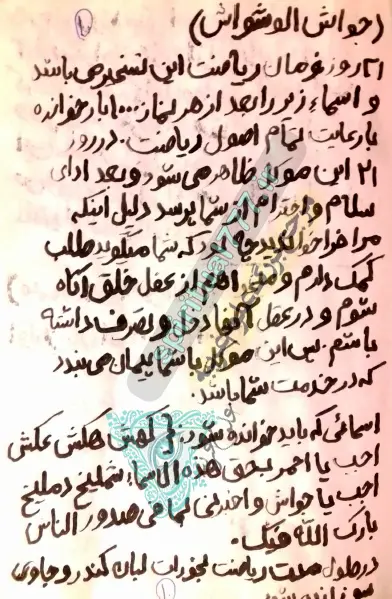 (حواش الوشواش)
۲۱ روز زمان ریاضت این تسخیر می باشد
و اسماء زیر را بعد از هر نماز ۱۰۰۰ بار خوانده
با رعایت تمام اصول ریاضت. در روز
۲۱ این موکل ظاهر می شود و بعد ادای
سلام و احترام از شما پرسد دلیل اینکه
مرا فرا خواندید چه بود که شما میگوید طلب
کمک دارم و می خواهم از عقل خلق آگاه
شوم و در عقل آنها دخل و تصرف داشته
باشم. پس این موکل با شما پیمان می بندد
که در خدمت شما باشد.
اسمائی که باید خوانده شود: هکش عکش
اجب یا احمر بحق هذه الاسماء شملیخ دملیخ
اجب یا حواش و اخبرنی بما فی صدور الناس
بارک الله فیک.
در طول مدت ریاضت بخورات لبان کندر و جاوی
سوزانده شود
spiritual777.ir